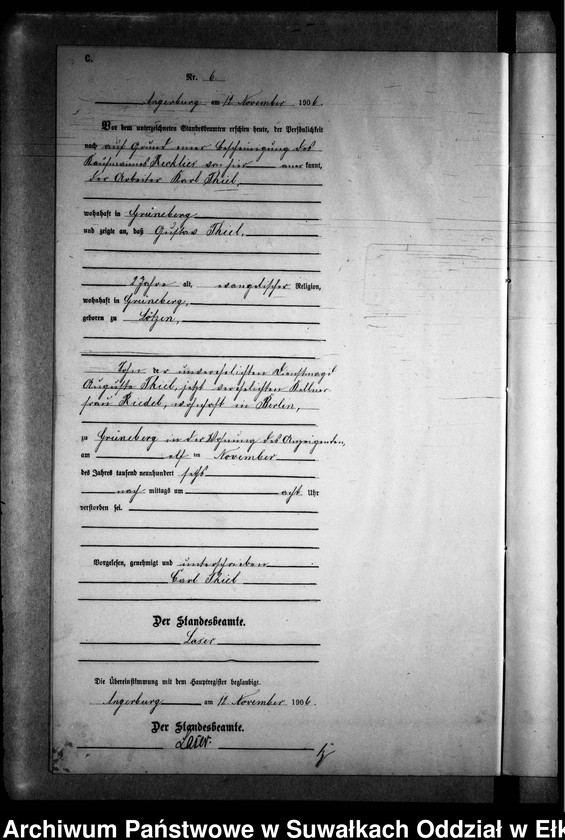 C.
Nr. 6
Angerburg am 12 November 1906.
Vor dem unterzeichneten Standesbeamten erschien heute, der Persönlichkeit
nach auf Grund einer Bescheinigung des
Kaufmanns Rechlies von hier anerkannt,
der Arbeiter Karl Thiel,
wohnhaft in Grüneberg
und zeigte an, daß Gustav Thiel,
2 Jahre alt, evangelischer Religion,
wohnhaft in Grüneberg,
geboren zu Lötzen,
Sohn der unverehelichten Dienstmagd
Auguste Thiel, jetzt verehelichten Kellner
frau Riedel, wohnhaft in Berlin,
zu Grüneberg in der Wohnung des Anzeigenden,
am elf ten November
des Jahres tausend neunhundert sechs
nach mittags um acht Uhr
verstorben sei.
Vorgelesen, genehmigt und unterschrieben
Carl Thiel
Der Standesbeamte.
Laser
Die Übereinstimmung mit dem Hauptregister beglaubigt.
Angerburg am 12 November 1906.
Der Standesbeamte.
Laser.
Archiwum Państwowe w Suwałkach Oddział w Ełk